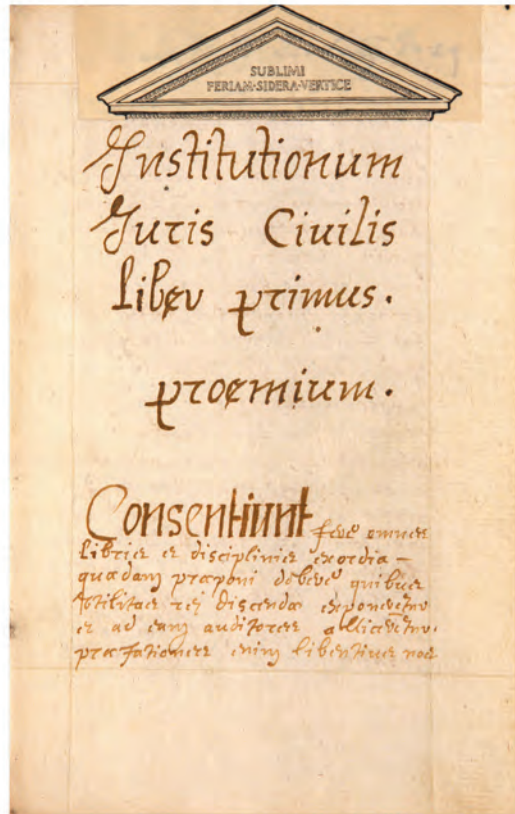 SUBLIMI
FERIAM·SIDERA·VERTICE
Institutionum
Iuris Ciuilis
Liber primus.
proemium.
Consentiunt fere omnes
libris et disciplinis exordia -
quædam præponi debere quibus
vtilitas rei discendæ exponeretur
et ad eam auditores allicerentur.
præfationes enim libentius nos